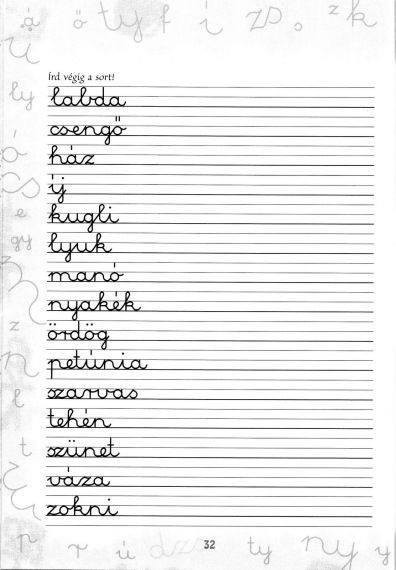 Írd végig a sort!
labda
csengő
ház
íj
kugli
lyuk
manó
nyakék
ördög
petúnia
szarvas
tehén
szünet
váza
zokni
32